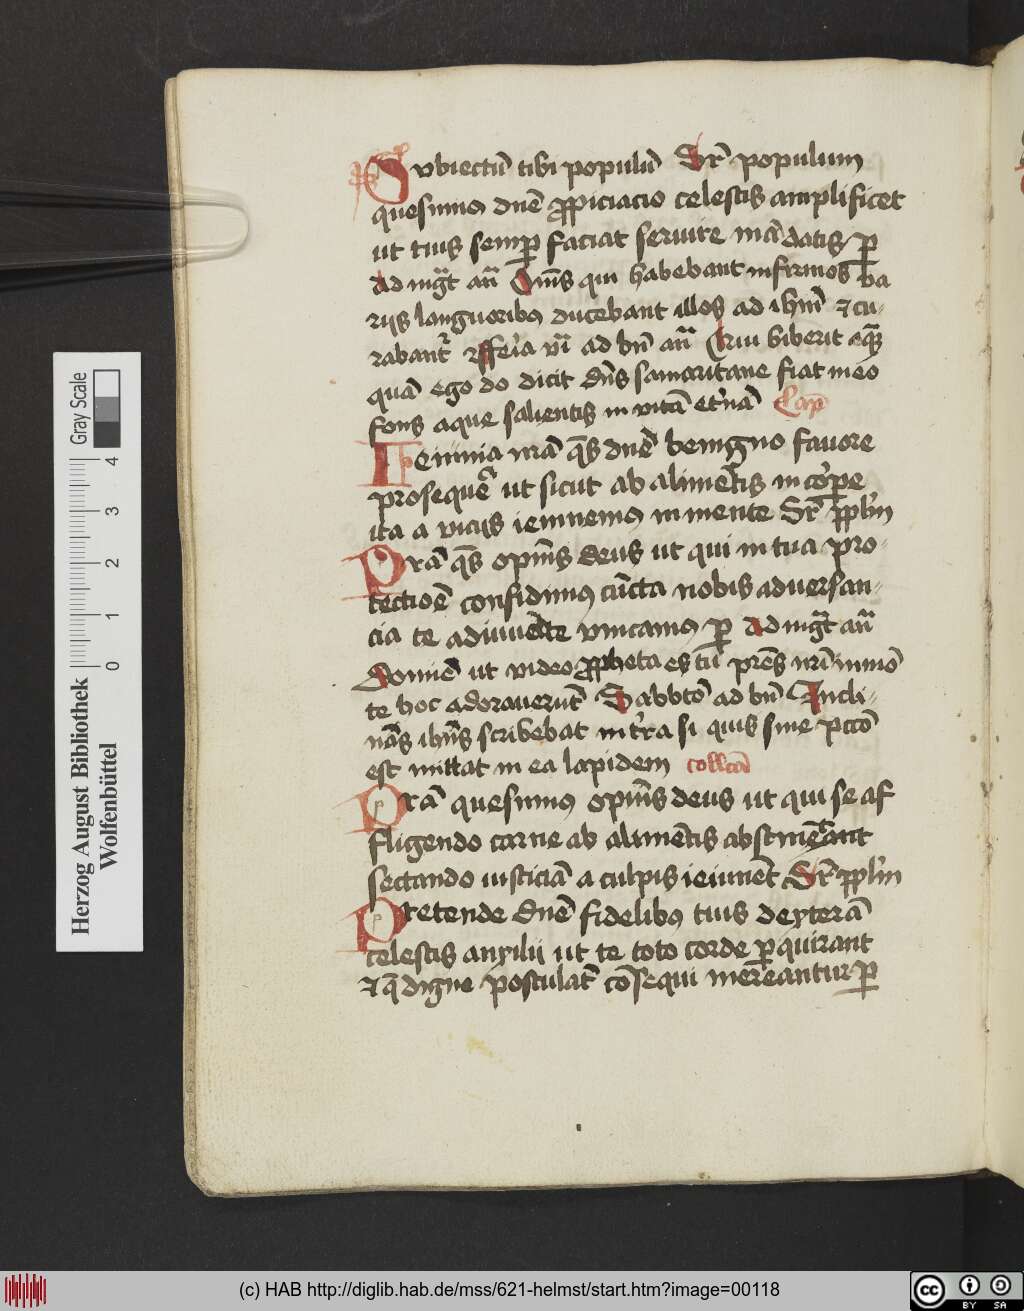 Subiectū tibi populū Sr̄ populum
quesumus dn̄e ꝓpiciacio celestis amplificet
ut tuis semꝑ faciat seruire mādatis ꝑ
Ad mgt̄ an̄ Om̄s qui habebant infirmos va
riis languoribꝰ ducebant illos ad ihm̄ et cu-
rabant᷑ ad bn̄ an̄ Qui biberit aquā
quā ego do dicit dn̄s samaritane fiat in eo
fons aque salientis in vitā et'nā
Ieiunia nr̄a qs̄ dn̄e benigno fauore
prosequē ut sicut ab alimētis in corꝑe
ita a viciis ieiunemꝰ in mente Sr̄ ppl'm
Pr̄a qs̄ opm̄s deus ut qui in tua pro-
tectioē confidimꝰ cūcta nobis aduersan-
cia te adiuuēte vincamus ꝑ Ad mgt̄ an̄
Domiē ut video ꝓpheta es tū pr̄es nr̄i in mō
te hoc adorauerūt Sabbto ad bn̄ Incli-
nās ihūs scribebat in t'ra si quis sine pctō
est mittat in ea lapidem collcā
Pr̄a quesumus opm̄s deus ut qui se af
fligendo carne ab alimētis abstinēt
sectando iusticiā a culpis ieiunēt Sr̄ ppl'm
Pretende dn̄e fidelibꝰ tuis dexterā
celestis auxilii ut te toto corde ꝑquirant
et q̄ digne postulāt cōsequi mereantur ꝑ
Herzog August Bibliothek
Wolfenbüttel
0 1 2 3 4
Gray Scale
(c) HAB http://diglib.hab.de/mss/621-helmst/start.htm?image=00118
cc BY SA